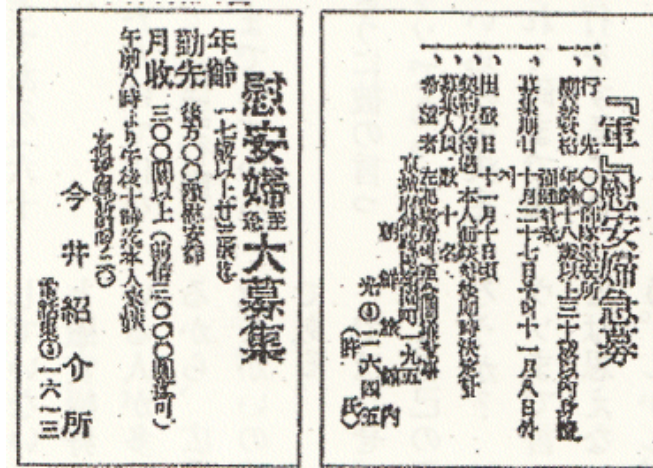 『軍』慰安婦急募
一、行 先 〇〇部隊慰安所
一、應募資格 年齡十八歲以上三十歲以內身體
强健者
一、募集期日 十月二十七日より十一月八日
一、出發日 十一月十日頃
一、契約及待遇 本人面談後即時決定
一、募集人員 數十名
一、希望者 左記場所に至急問議の事
京城府鍾路區 町一九五
朝鮮旅館內
光③二六四五
(許氏)
慰安婦至急大募集
年齡 一七歲以上廿三歲迄
勤先 後方〇〇隊慰安部
月收 三〇〇圓以上(前借三〇〇〇圓迄可)
午前八時より午後十時迄本人來談
今井紹介所
電話東③一六一三